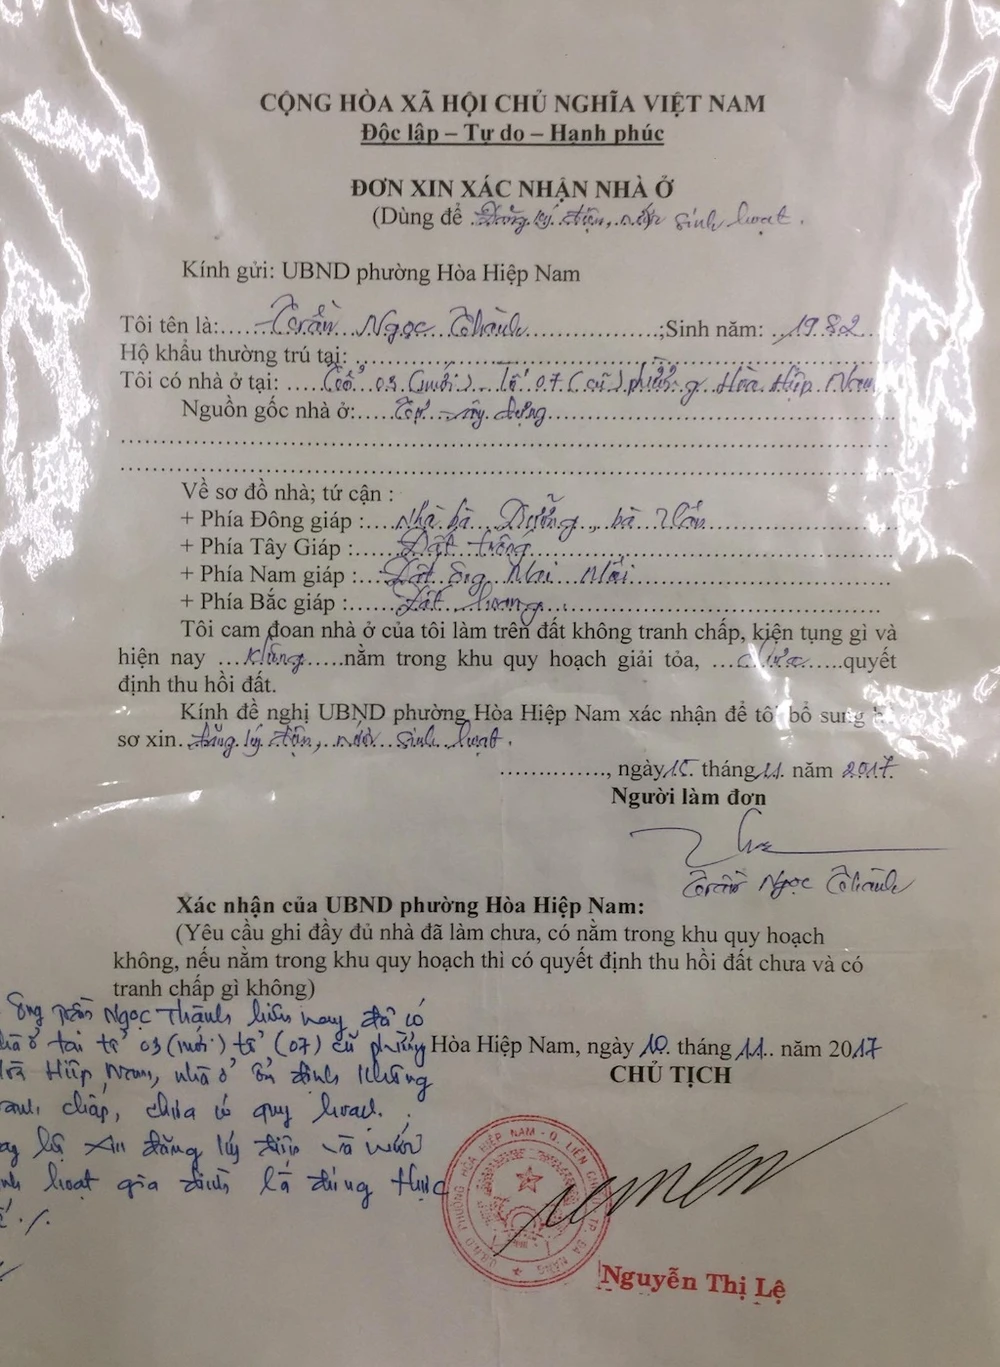 CỘNG HÒA XÃ HỘI CHỦ NGHĨA VIỆT NAM
Độc lập – Tự do – Hạnh phúc
ĐƠN XIN XÁC NHẬN NHÀ Ở
(Dùng để Đăng ký điện, nước sinh hoạt.
Kính gửi: UBND phường Hòa Hiệp Nam
Tôi tên là: Trần Ngọc Thành ;Sinh năm: 1982
Hộ khẩu thường trú tại:
Tôi có nhà ở tại: Tổ 03 (mới) Tổ 07 (cũ) phường Hòa Hiệp Nam
Nguồn gốc nhà ở: Tự xây dựng
Về sơ đồ nhà; tứ cận :
+ Phía Đông giáp : Nhà bà Dưỡng, bà
+ Phía Tây Giáp : Đất trống
+ Phía Nam giáp : Đất ông Mai
+ Phía Bắc giáp : Đất hoang
Tôi cam đoan nhà ở của tôi làm trên đất không tranh chấp, kiện tụng gì và
hiện nay không nằm trong khu quy hoạch giải tỏa, chưa quyết
định thu hồi đất.
Kính đề nghị UBND phường Hòa Hiệp Nam xác nhận để tôi bổ sung
sơ xin đăng ký điện, nước sinh hoạt.
, ngày tháng 11 năm 2017
Người làm đơn
Trần Ngọc Thành
Xác nhận của UBND phường Hòa Hiệp Nam:
(Yêu cầu ghi đầy đủ nhà đã làm chưa, có nằm trong khu quy hoạch
không, nếu nằm trong khu quy hoạch thì có quyết định thu hồi đất chưa và có
tranh chấp gì không)
Ông Trần Ngọc Thành hiện nay đã có
ở tại tổ 03 (mới) tổ (07) cũ phường
Hiệp Nam, nhà ở ổn định không
chấp, chưa có quy hoạch.
đăng ký điện và nước
hoạt gia đình là đúng thực
Hòa Hiệp Nam, ngày 10 tháng 11 năm 2017
CHỦ TỊCH
U.B.N.D PHƯỜNG HÒA HIỆP NAM - Q. LIÊN CHIỂU - TP. ĐÀ NẴNG
Nguyễn Thị Lệ